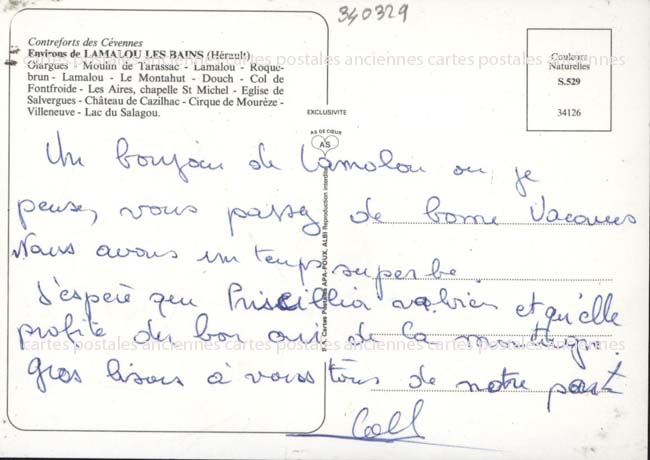 340329
Contreforts des Cévennes
Environs de LAMALOU LES BAINS (Hérault)
Olargues - Moulin de Tarassac - Lamalou - Roque-
brun - Lamalou - Le Montahut - Douch - Col de
Fontfroide - Les Aires, chapelle St Michel - Eglise de
Salvergues - Château de Cazilhac - Cirque de Mourèze -
Villeneuve - Lac du Salagou.
Couleurs
Naturelles
S.529
34126
EXCLUSIVITE
AS DE CŒUR
AS
Cartes Postales APA-POUX, ALBI Reproduction interdite
cartes postales anciennes cartes postales anciennes cartes postales anciennes
Un bonjour de Lamalou ou je
pense, vous passez de bonne Vacances
Nous avons un temps superbe.
J'espère que Priscillia va bien et qu'elle
profite du bon air de la montagne.
Gros bisous à vous tous de notre part
cartes postales anciennes cartes postales anciennes cartes postales anciennes